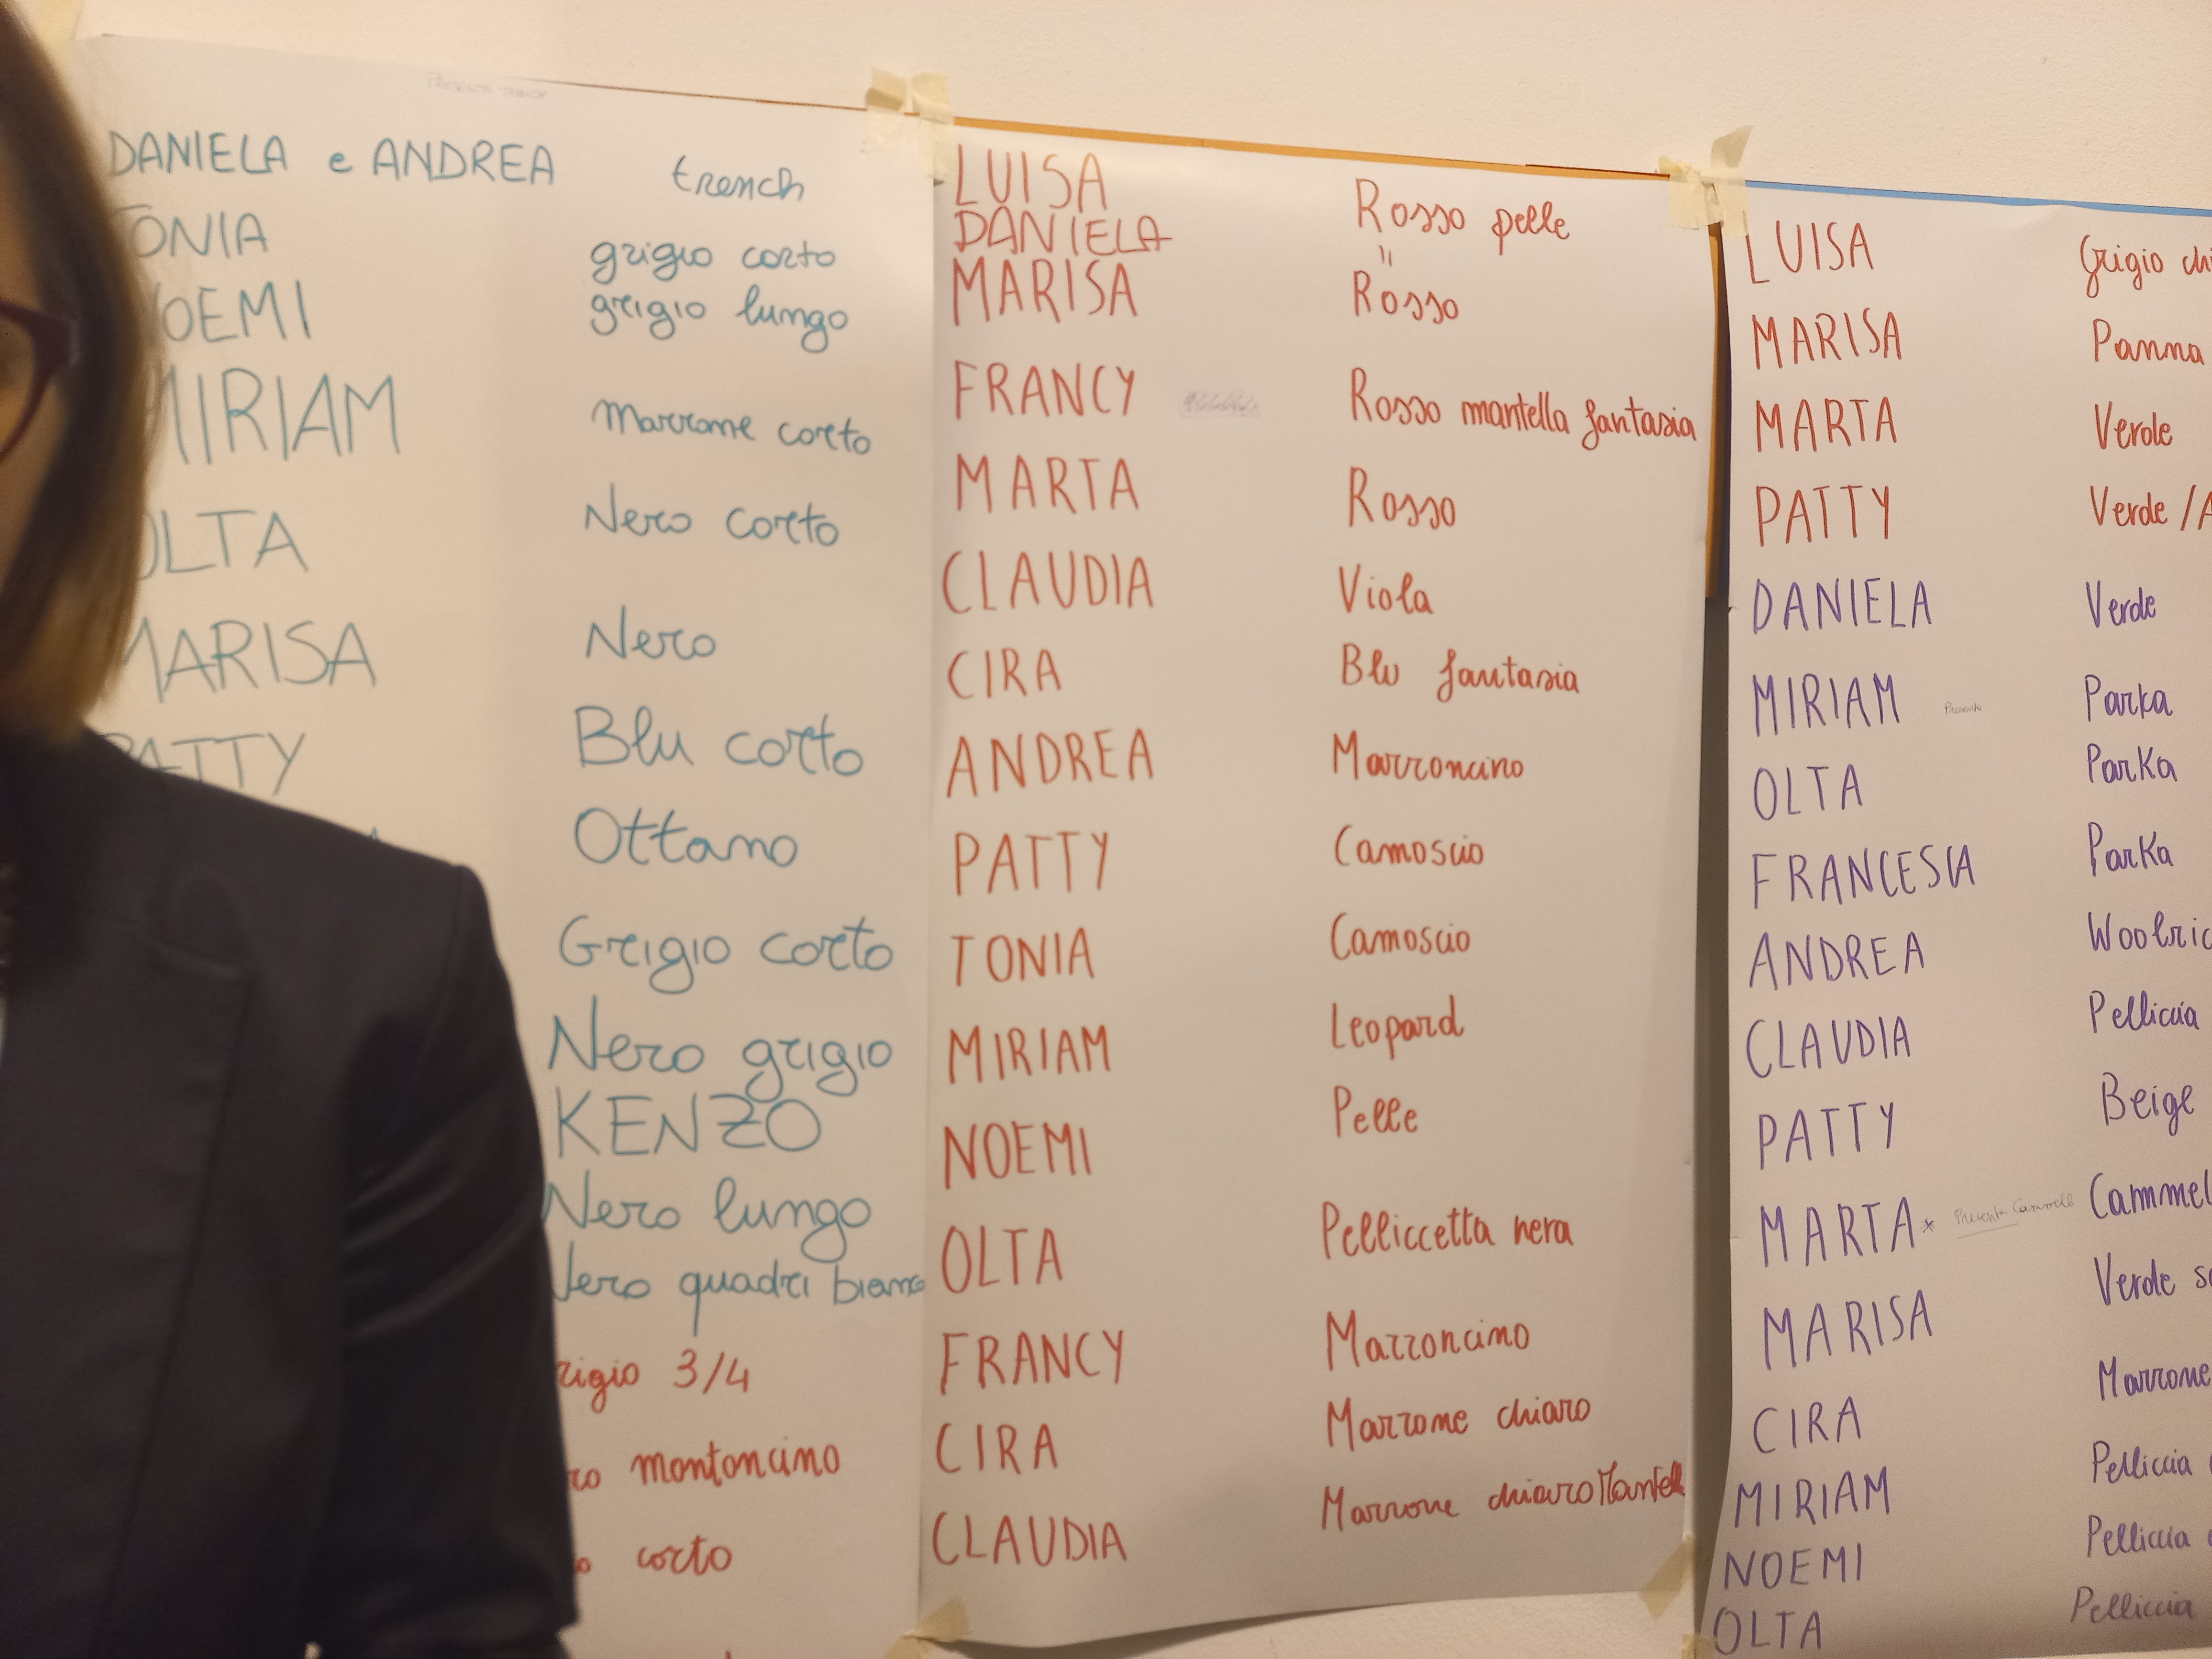 DANIELA e ANDREA trench
TONIA grigio corto
NOEMI grigio lungo
MIRIAM Marrone corto
OLTA Nero corto
MARISA Nero
PATTY Blu corto
Ottano
Grigio corto
Nero grigio
KENZO
Nero lungo
Nero quadri bianco
rigio 3/4
ro montoncino
o corto
LUISA Rosso pelle
DANIELA "
MARISA Rosso
FRANCY Rosso mantella fantasia
MARTA Rosso
CLAUDIA Viola
CIRA Blu fantasia
ANDREA Marroncino
PATTY Camoscio
TONIA Camoscio
MIRIAM Leopard
NOEMI Pelle
OLTA Pelliccetta nera
FRANCY Marroncino
CIRA Marrone chiaro
CLAUDIA Marrone chiaro Mantell
LUISA Grigio chi
MARISA Panna
MARTA Verde
PATTY Verde /A
DANIELA Verde
MIRIAM Presenta Parka
OLTA Parka
FRANCESCA Parka
ANDREA Woolric
CLAUDIA Pelliccia
PATTY Beige
MARTA* Presenta Cammell Cammel
MARISA Verde sc
CIRA Marrone
MIRIAM Pelliccia
NOEMI Pelliccia
OLTA Pelliccia